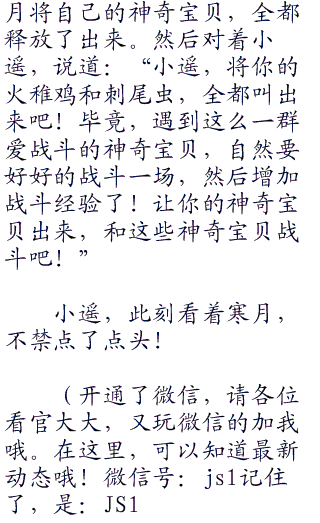 月将自己的神奇宝贝，全都
释放了出来。然后对着小
遥，说道：“小遥，将你的
火稚鸡和刺尾虫，全都叫出
来吧！毕竟，遇到这么一群
爱战斗的神奇宝贝，自然要
好好的战斗一场，然后增加
战斗经验了！让你的神奇宝
贝出来，和这些神奇宝贝战
斗吧！”
小遥，此刻看着寒月，
不禁点了点头！
（开通了微信，请各位
看官大大，又玩微信的加我
哦。在这里，可以知道最新
动态哦！微信号：jsl记住
了，是：JSl